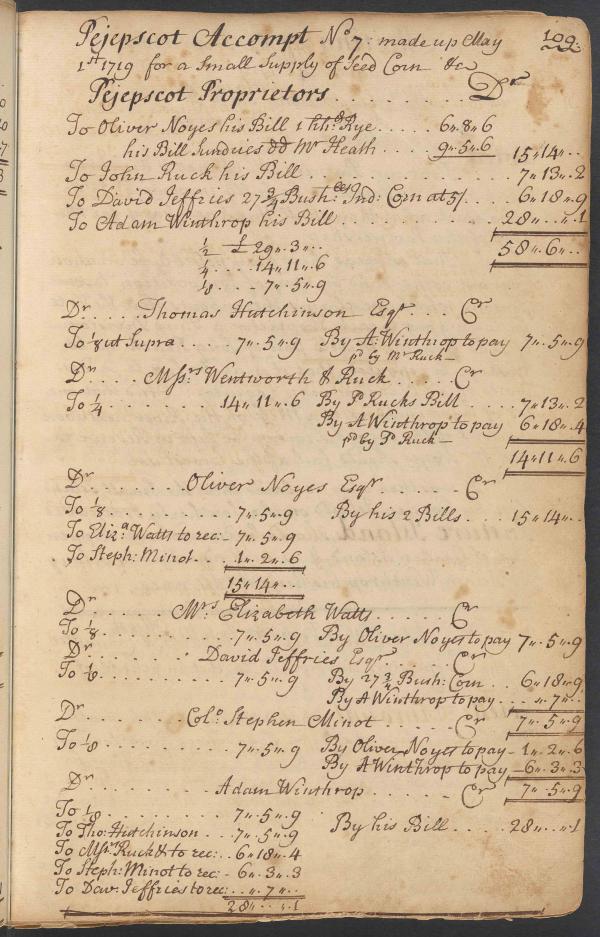 Pejepscot Accompt No 7: made up May 109:
1st 1719 for a Small Supply of Seed Corn &c
Pejepscot Proprietors . . . . . . . . . Dr
To Oliver Noyes his Bill 1 hhd: Rye . . . . 6 " 8 " 6
his Bill Sundries dd Mr Heath . . . . 9 " 5 " 6 15 " 14 " . .
To John Ruck his Bill . . . . . . . . . . 7 " 13 " 2
To David Jeffries 27 3/4 Bush: Ind: Corn at 5/ . . . . 6 " 18 " 9
To Adam Winthrop his Bill . . . . . . . . . . 28 " . . " 1
1/2 £ 29 " 3 " . . 58 " 6 " . .
1/4 . . . . 14 " 11 " 6
1/8 . . . . 7 " 5 " 9
Dr . . . . Thomas Hutchinson Esqr . . . Cr
To 1/8 ut Supra . . . . 7 " 5 " 9 By A: Winthrop to pay 7 " 5 " 9
pd by Mr Ruck —
Dr . . . . Messrs Wentworth & Ruck . . . . . Cr
To 1/4 . . . . . . . 14 " 11 " 6 By Do Rucks Bill . . . . 7 " 13 " 2
By A Winthrop to pay 6 " 18 " 4
pd by Do Ruck —
14 " 11 " 6
Dr . . . . . . . Oliver Noyes Esqr . . . . . Cr
To 1/8 . . . . . . . . 7 " 5 " 9 By his 2 Bills . . . . 15 " 14 " . .
To Eliza Watts to rec: - 7 " 5 " 9
To Steph: Minot . . 1 " 2 " 6
15 " 14 " . .
Dr . . . . . . Mrs Elizabeth Watts . . . . . Cr
To 1/8 . . . . . . . . 7 " 5 " 9 By Oliver Noyes to pay 7 " 5 " 9
Dr . . . . . . . . David Jeffries Esqr . . . . . Cr
To 1/8 . . . . . . . . 7 " 5 " 9 By 27 3/4 Bush: Corn . . 6 " 18 " 9
By A Winthrop to pay . . . . " 7 " . .
Dr . . . . . . Colo Stephen Minot . . . . . Cr 7 " 5 " 9
To 1/8 . . . . . . . . 7 " 5 " 9 By Oliver Noyes to pay - 1 " 2 " 6
By A Winthrop to pay - 6 " 3 " 3
Dr . . . . . . . . Adam Winthrop . . . . . . Cr 7 " 5 " 9
To 1/8 . . . . . . . . 7 " 5 " 9
To Tho: Hutchinson . . . 7 " 5 " 9 By his Bill . . . . 28 " . . " 1
To Messrs Ruck & to rec: . . 6 " 18 " 4
To Steph: Minot to rec: - 6 " 3 " 3
To Dav: Jeffries to rec: . . " 7 " . .
28 " . . " 1